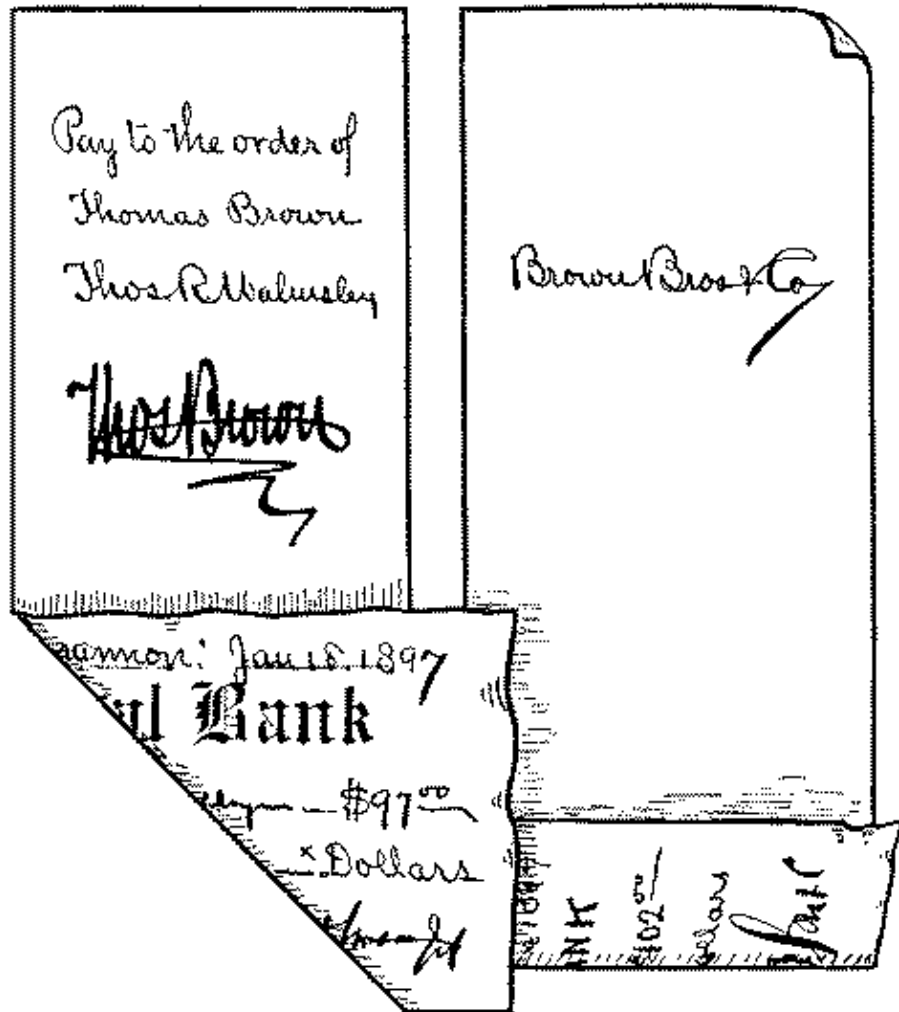 Pay to the order of
Thomas Brown
Thos R Walmsley
Thos Brown
Jan 18. 1897
Bank
$97 00
Dollars
Brown Bros & Co
NK
102